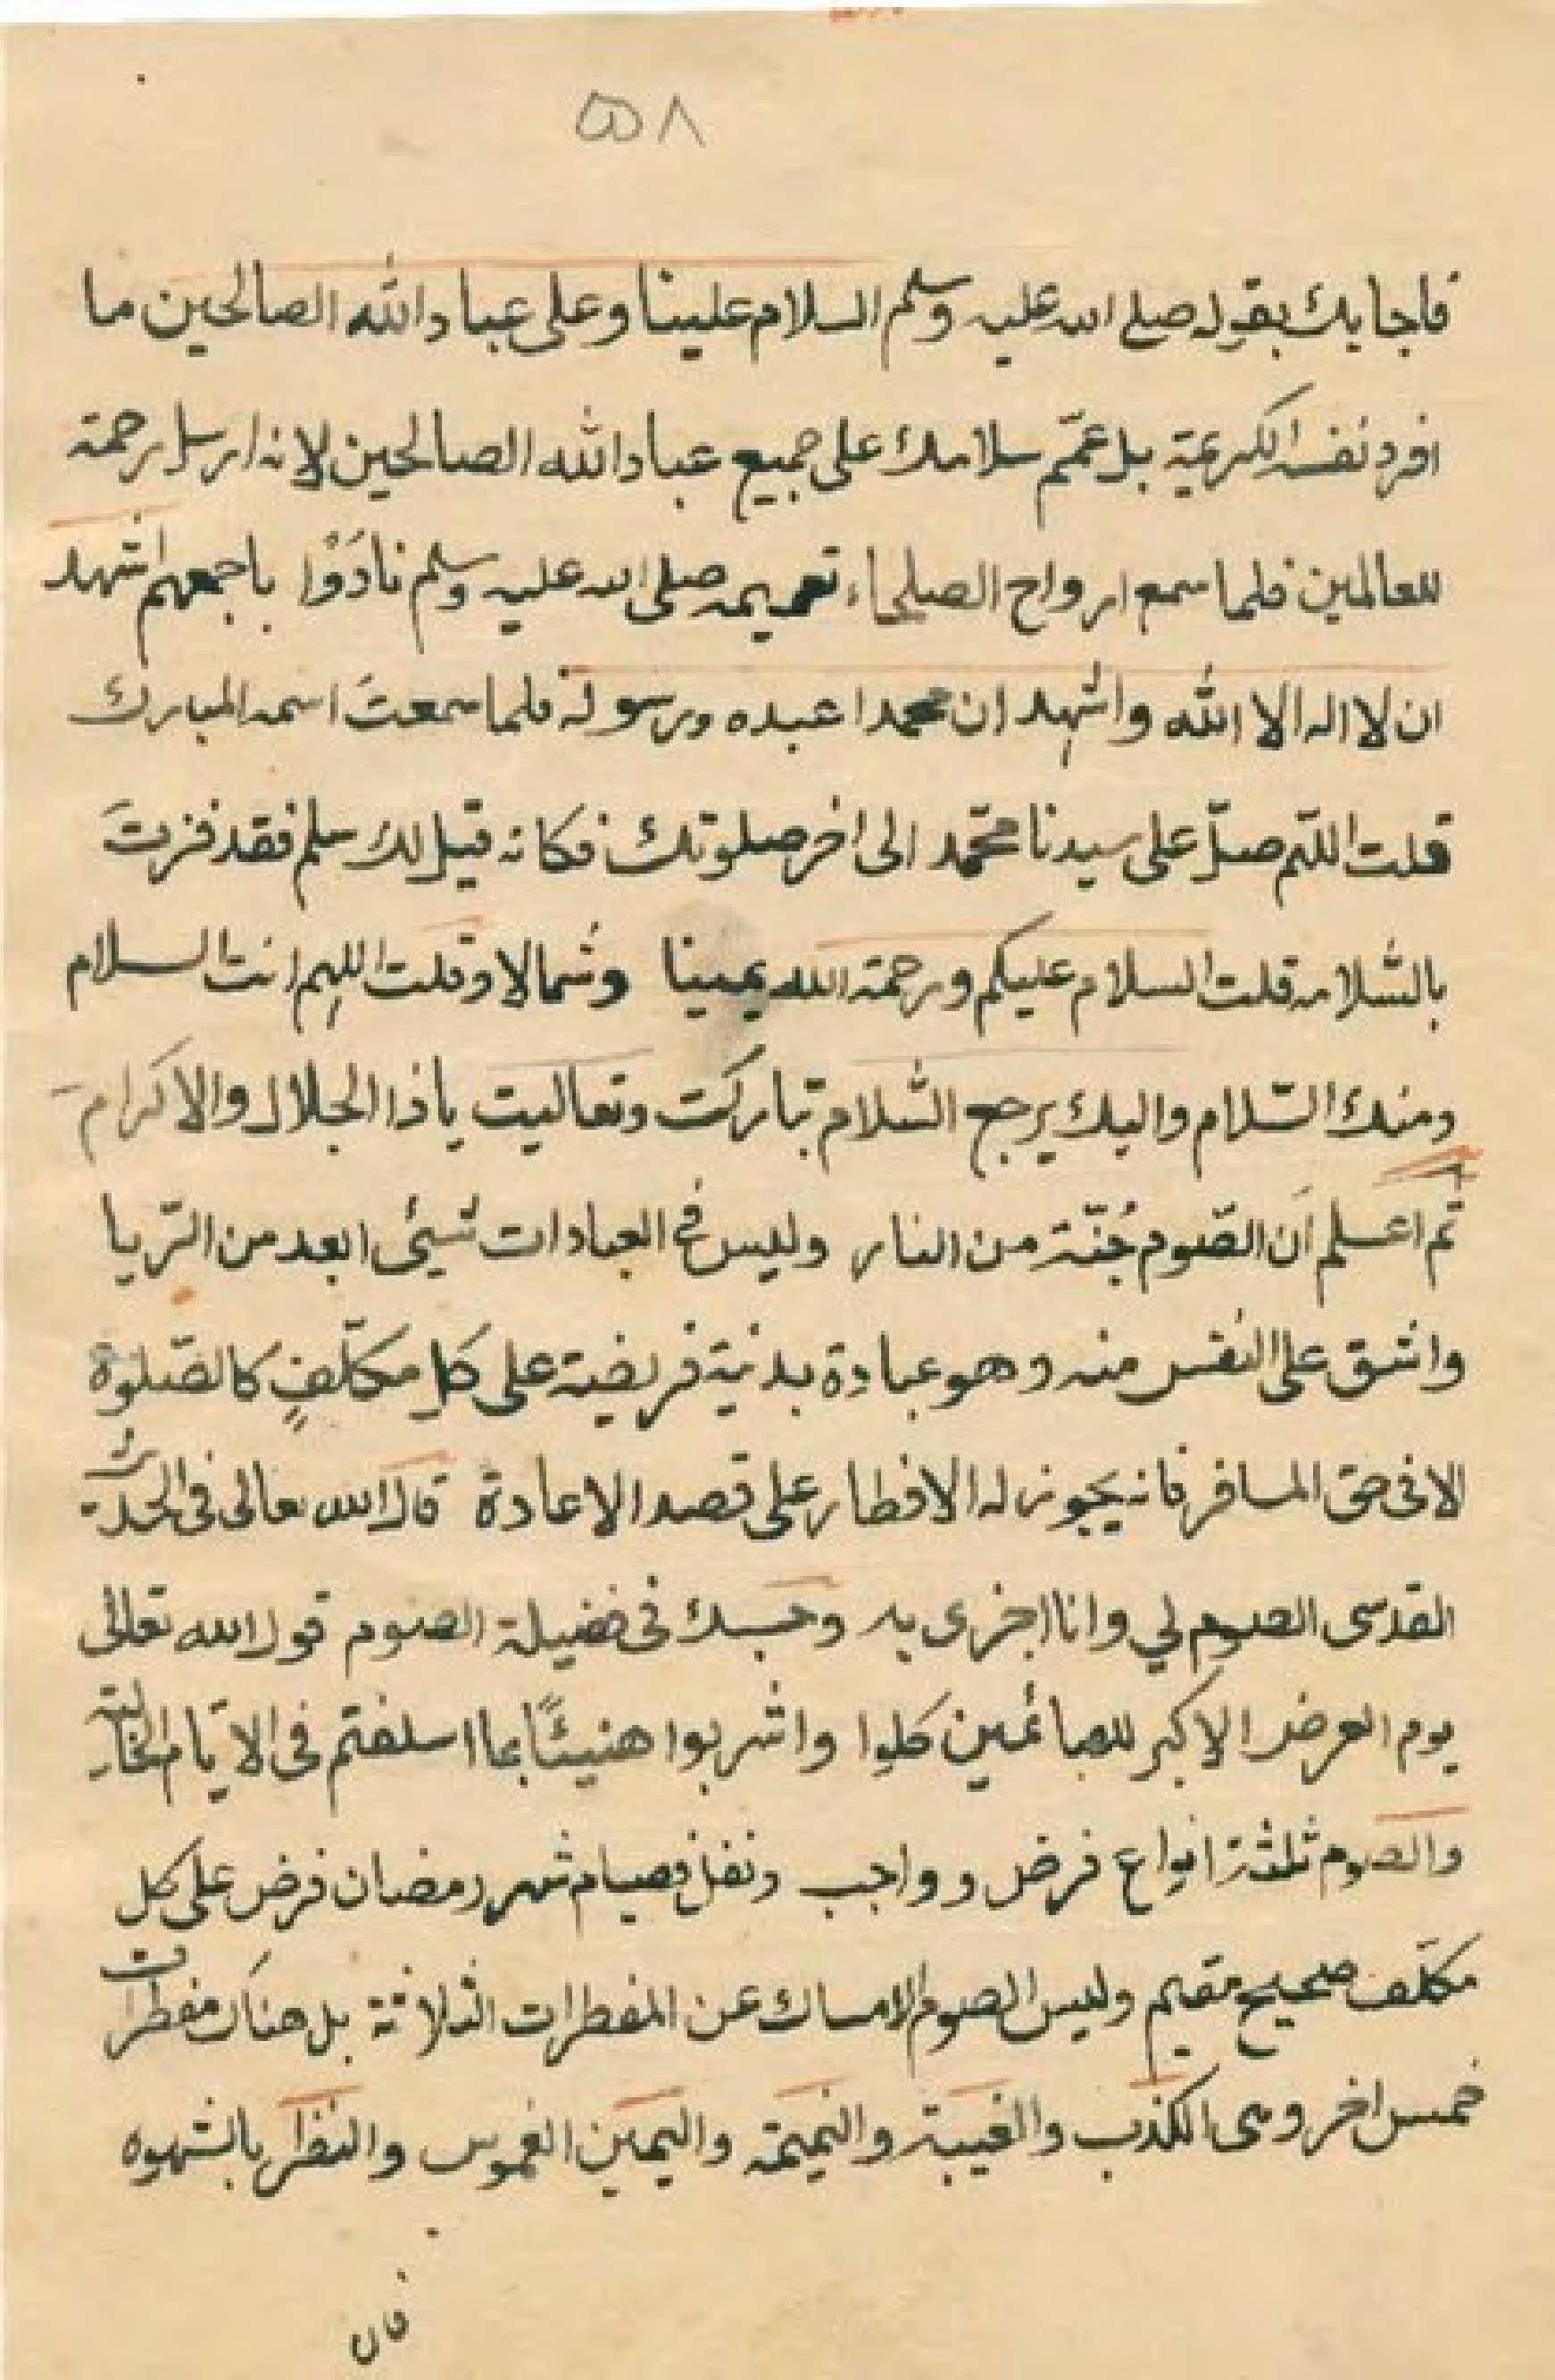 ٥٥٨
فاجابك بقوله صلى الله عليه وسلم السلام علينا وعلى عباد الله الصالحين ما
افرد نفسه الكريمة بل عمّم سلامك على جميع عباد الله الصالحين لانه ارسل رحمة
للعالمين فلما سمع ارواح الصلحاء تعميمه صلى الله عليه وسلم نادَوْا باجمعهم اشهد
ان لا اله الا الله واشهد ان محمدا عبده ورسوله فلما سمعتَ اسمه المبارك
قلت اللّهم صلّ على سيدنا محمّد الى اخر صلوتك فكانه قيل لك سلم فقد فزتَ
بالسّلامة قلت السلام عليكم ورحمة الله يمينا وشمالا وقلت اللهم انت السلام
ومنك السّلام واليك يرجع السّلام تباركت وتعاليت ياذا الجلال والاكرام
ثم اعلم اَن الصّوم جُنّة من النار وليس في العبادات شيئ ابعد من الرّيا
واشق على النفس منه وهو عبادة بدنيّة فريضة على كل مكلّفٍ كالصّلوة
الا فى حق المسافر فانه يَجوز له الافطار على قصد الاعادة قال الله تعالى فى الحديث
القدسى الصوم لي وانا اجزى به وحسبك فى فضيلة الصوم قول الله تعالى
يوم العرض الاكبر للصائمين كلوا واشربوا هنيئًا بما اسلفتم فى الايّام الخالية
والصوم ثلثة انواع فرض وواجب ونفل فصيام شهر رمضان فرض على كل
مكلّف صحيح مقيم وليس الصوم الامساك عن المفطرات الثلاثة بل هناك مفطرات
خمس اخر وهى الكذب والغيبة والنميمة واليمين الغموس والنظر بالشهوه
فان